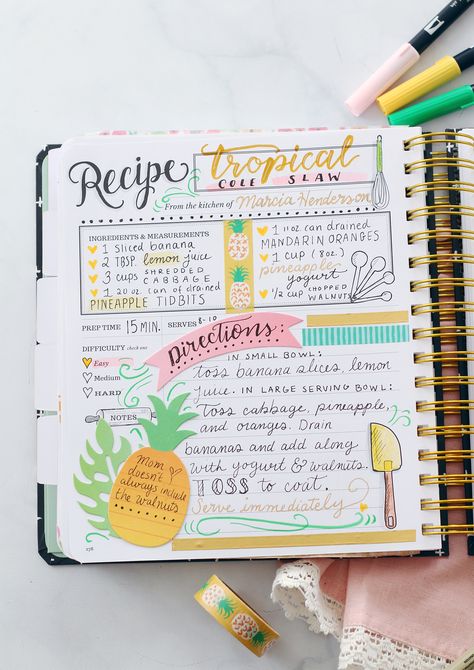 Recipe
tropical
COLE SLAW
From the kitchen of Marcia Henderson
INGREDIENTS & MEASUREMENTS
1 sliced banana
2 TBSP. lemon juice
3 cups SHREDDED CABBAGE
1 20 oz. can of drained
PINEAPPLE TIDBITS
1 11oz can drained
MANDARIN ORANGES
1 cup (8oz.)
pineapple
yogurt
1/2 cup CHOPPED WALNUTS
PREP TIME 15 MIN. SERVES 8-10
DIFFICULTY check one
Easy
Medium
HARD
NOTES
Mom
doesn't
always include
the walnuts
Directions:
IN SMALL BOWL:
toss banana slices, lemon
juice. IN LARGE SERVING BOWL:
toss cabbage, pineapple,
and oranges. Drain
bananas and add along
with yogurt & walnuts.
TOSS to coat.
Serve immediately
178